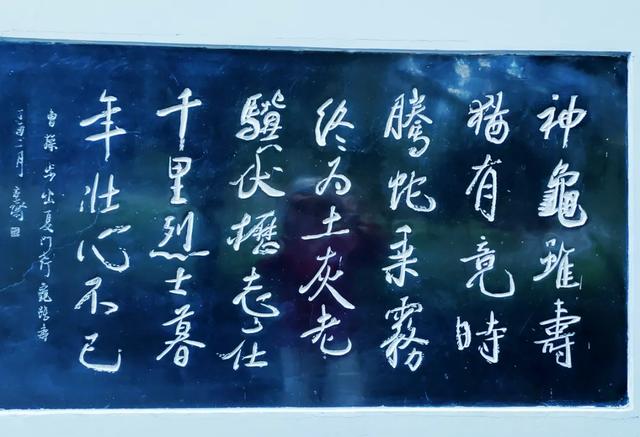 神龜雖壽
猶有竟時
騰蛇乘霧
终为土灰老
驥伏櫪志在
千里烈士暮
年壮心不已
曹操步出夏门行龜雖壽
丁酉二月